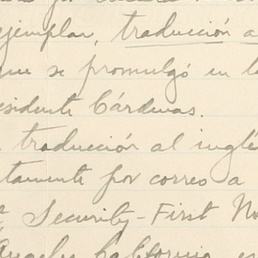 ejemplar, traducción a
que se promulgó en l
sidente Cárdenas.
traducción al inglé
tamente por correo a
Security-First Na
Angeles, California, es